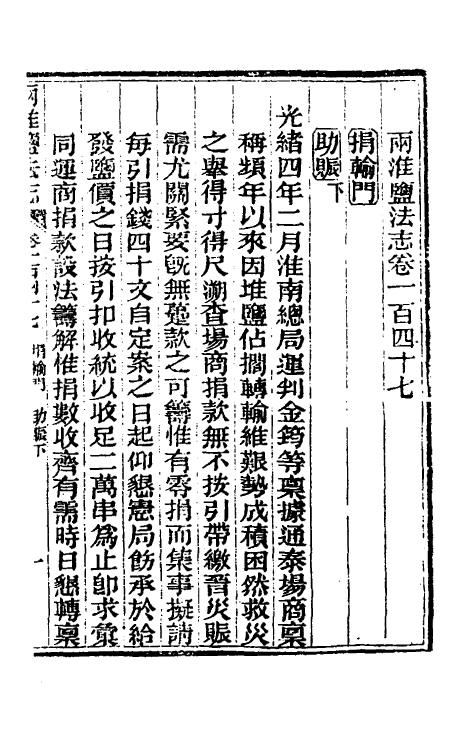 兩淮鹽法志卷一百四十七
捐輸門
助賑下
光緒四年二月淮南總局運判金筠等稟據通泰場商稟
稱頻年以來因堆鹽佔擱轉輸維艱勢成積困然救災
之舉得寸得尺溯查場商捐款無不按引帶繳晉災賑
需尤關緊要旣無躉款之可籌惟有零捐而集事擬請
每引捐錢四十文自定案之日起仰懇憲局飭承於給
發鹽價之日按引扣收統以收足二萬串爲止卽求彙
同運商捐款設法籌解惟捐數收齊有需時日懇轉稟
兩淮鹽法志 卷一百四十七 捐輸門 助賑下 一